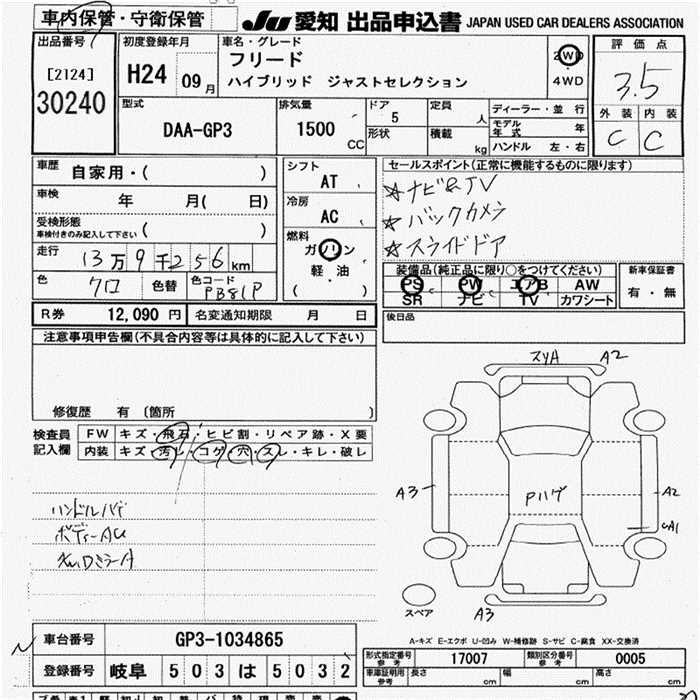 車内保管・守衛保管 JU 愛知 出品申込書 JAPAN USED CAR DEALERS ASSOCIATION
出品番号 [2124] 30240
初度登録年月 H24 09月
車名・グレード フリード
ハイブリッド ジャストセレクション
2WD 4WD
評価点 3.5
外装 内装 C C
型式 DAA-GP3
排気量 1500 CC
ドア 5 形状
定員 人 積載 kg
ディーラー・並行
モデル年式 年
ハンドル 左・右
車歴 自家用・( )
車検 年 月( 日)
受検形態 車検付きのみ記入して下さい ( )
走行 13万9千256km
色 クロ 色替 色コード PB81P
シフト AT
冷房 AC
燃料 ガソリン 軽油 ( )
セールスポイント(正常に機能するものに限ります)
☆ナビ&TV
☆バックカメラ
☆スライドドア
装備品(純正品に限り○をつけてください)
PS PW エアB AW
SR ナビ TV カワシート
新車保証書 有・無
R券 12,090円 名変通知期限 月 日
後日品
注意事項申告欄(不具合内容等は具体的に記入して下さい)
修復歴 有 〔箇所 〕
検査員記入欄 FW キズ・飛石・ヒビ割・リペア跡・X要
内装 キズ・汚レ・コゲ・穴・スレ・キレ・破レ
スリA A2
A3 Pハゲ A2
A1
ハンドルハゲ
ボディーAU
スペア A3
A-キズ E-エクボ U-凹み W-補修跡 S-サビ C-腐食 XX-交換済
車台番号 GP3-1034865
登録番号 岐阜 503 は 5032
型式指定番号 参考 17007 類別区分番号 参考 0005
車庫証明用 参考 長さ cm 幅 cm 高さ cm